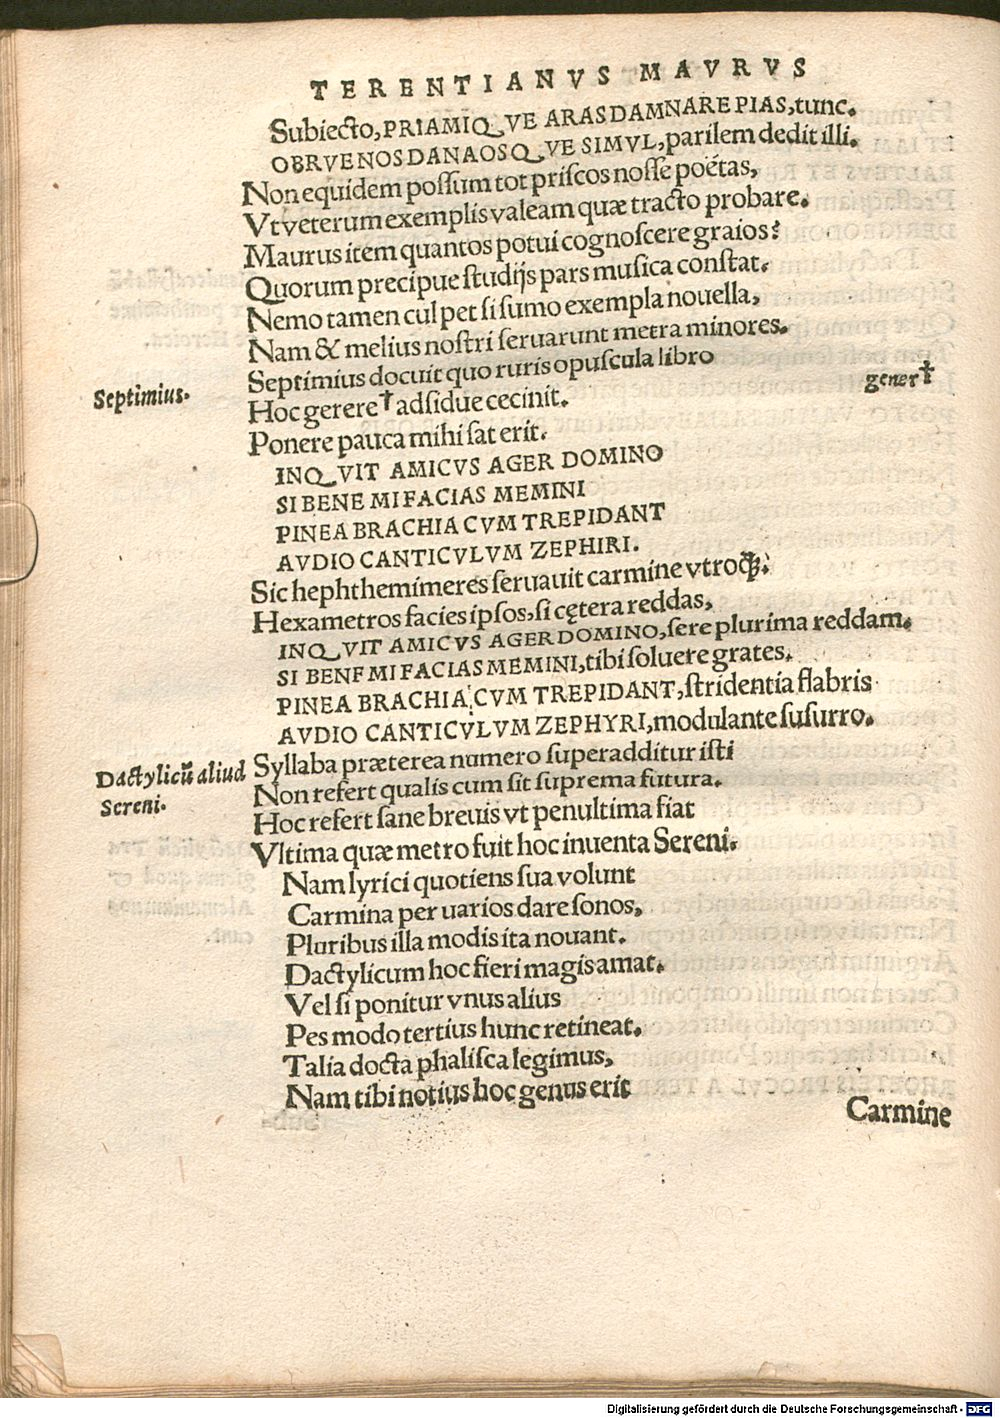 TERENTIANVS MAVRVS
Subiecto, PRIAMIQVE ARAS DAMNARE PIAS, tunc.
OBRVE NOS DANAOSQVE SIMVL, parilem dedit illi.
Non equidem possum tot priscos nosse poétas,
Vt veterum exemplis valeam quæ tracto probare.
Maurus item quantos potui cognoscere graios?
Quorum precipue studijs pars musica constat.
Nemo tamen culpet si sumo exempla nouella,
Nam & melius nostri seruarunt metra minores.
Septimius docuit quo ruris opuscula libro
Septimius.
Hoc gerere† adsidue cecinit.
gener†
Ponere pauca mihi sat erit.
INQVIT AMICVS AGER DOMINO
SI BENE MI FACIAS MEMINI
PINEA BRACHIA CVM TREPIDANT
AVDIO CANTICVLVM ZEPHIRI.
Sic hephthemimeres seruauit carmine vtroq;.
Hexametros facies ipsos, si cętera reddas,
INQVIT AMICVS AGER DOMINO, fere plurima reddam.
SI BENF MI FACIAS MEMINI, tibi soluere grates.
PINEA BRACHIA CVM TREPIDANT, stridentia flabris
AVDIO CANTICVLVM ZEPHYRI, modulante susurro.
Dactylicū aliud
Sereni.
Syllaba præterea numero superadditur isti
Non refert qualis cum sit suprema futura.
Hoc refert sane breuis vt penultima fiat
Vltima quæ metro fuit hoc inuenta Sereni.
Nam lyrici quotiens sua volunt
Carmina per uarios dare sonos,
Pluribus illa modis ita nouant.
Dactylicum hoc fieri magis amat.
Vel si ponitur vnus alius
Pes modo tertius hunc retineat.
Talia docta phalisca legimus,
Nam tibi notius hoc genus erit
Carmine
Digitalisierung gefördert durch die Deutsche Forschungsgemeinschaft - DFG